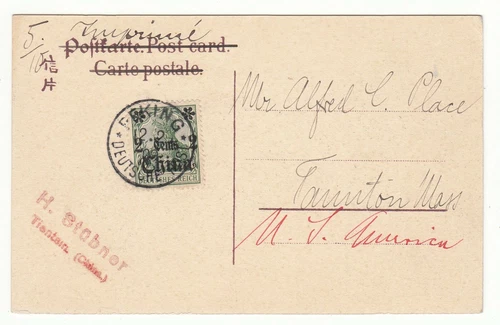 5/10
Imprimé
Postkarte. Post card.
Carte postale.
信
片
PEKING
DEUTSCHE POST
2 Cents 2
China
H. Stübner
Tientsin. (China.)
Mr Alfred C. Place
Taunton Mass
U. S. America